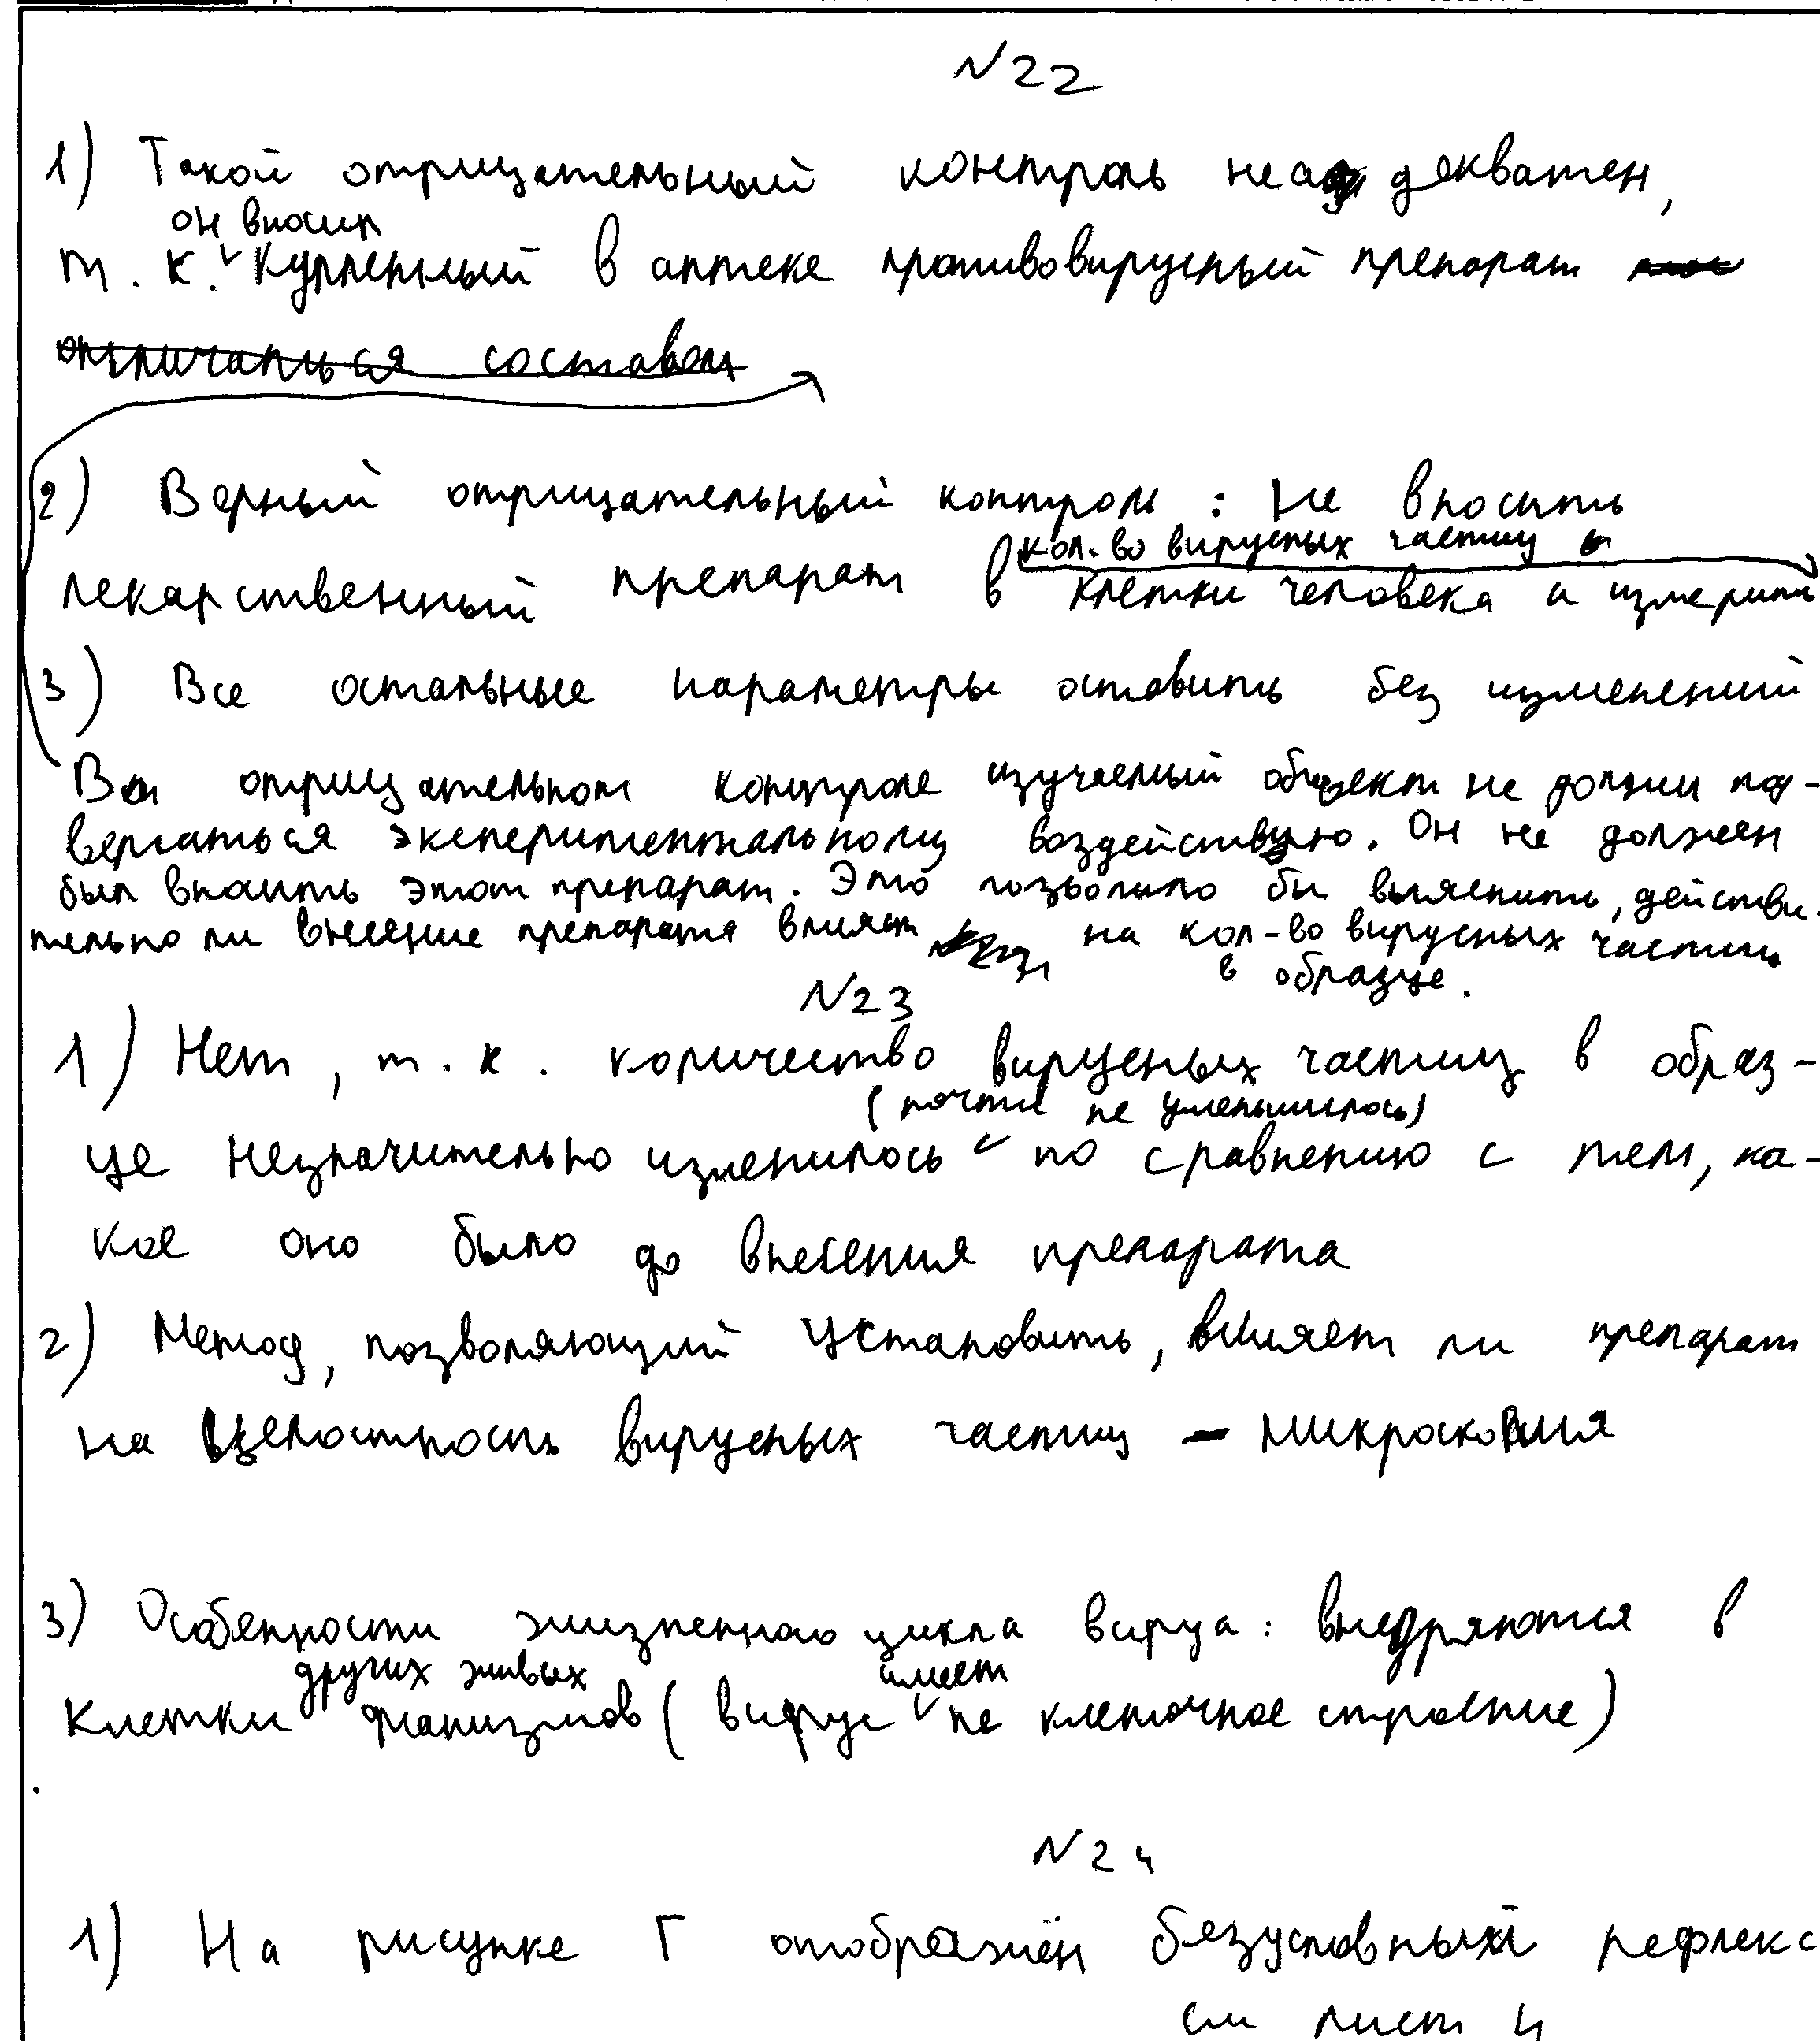 N22
1) Такой отрицательный контроль неадекватен,
он вносил
т. к. купленный в аптеке противовирусный препарат
отличаться составом
2) Верный отрицательный контроль: не вносить
кол-во вирусных частиц в
лекарственный препарат в клетки человека и измерить
3) Все остальные параметры оставить без изменений
В отрицательном контроле изучаемый объект не должен под-
вергаться экспериментальному воздействию. Он не должен
был вносить этот препарат. Это позволило бы выяснить, действи-
тельно ли внесение препарата влияет на кол-во вирусных частиц
в образце.
N23
1) Нет, т. к. количество вирусных частиц в образ-
(почти не уменьшилось)
це незначительно изменилось по сравнению с тем, ка-
кое оно было до внесения препарата
2) Метод, позволяющий установить, влияет ли препарат
на целостность вирусных частиц - микроскопия
3) Особенности жизненного цикла вируса: внедряются в
других живых имеет
клетки организмов (вирус не клеточное строение)
N24
1) На рисунке Г отображён безусловный рефлекс
см лист 4